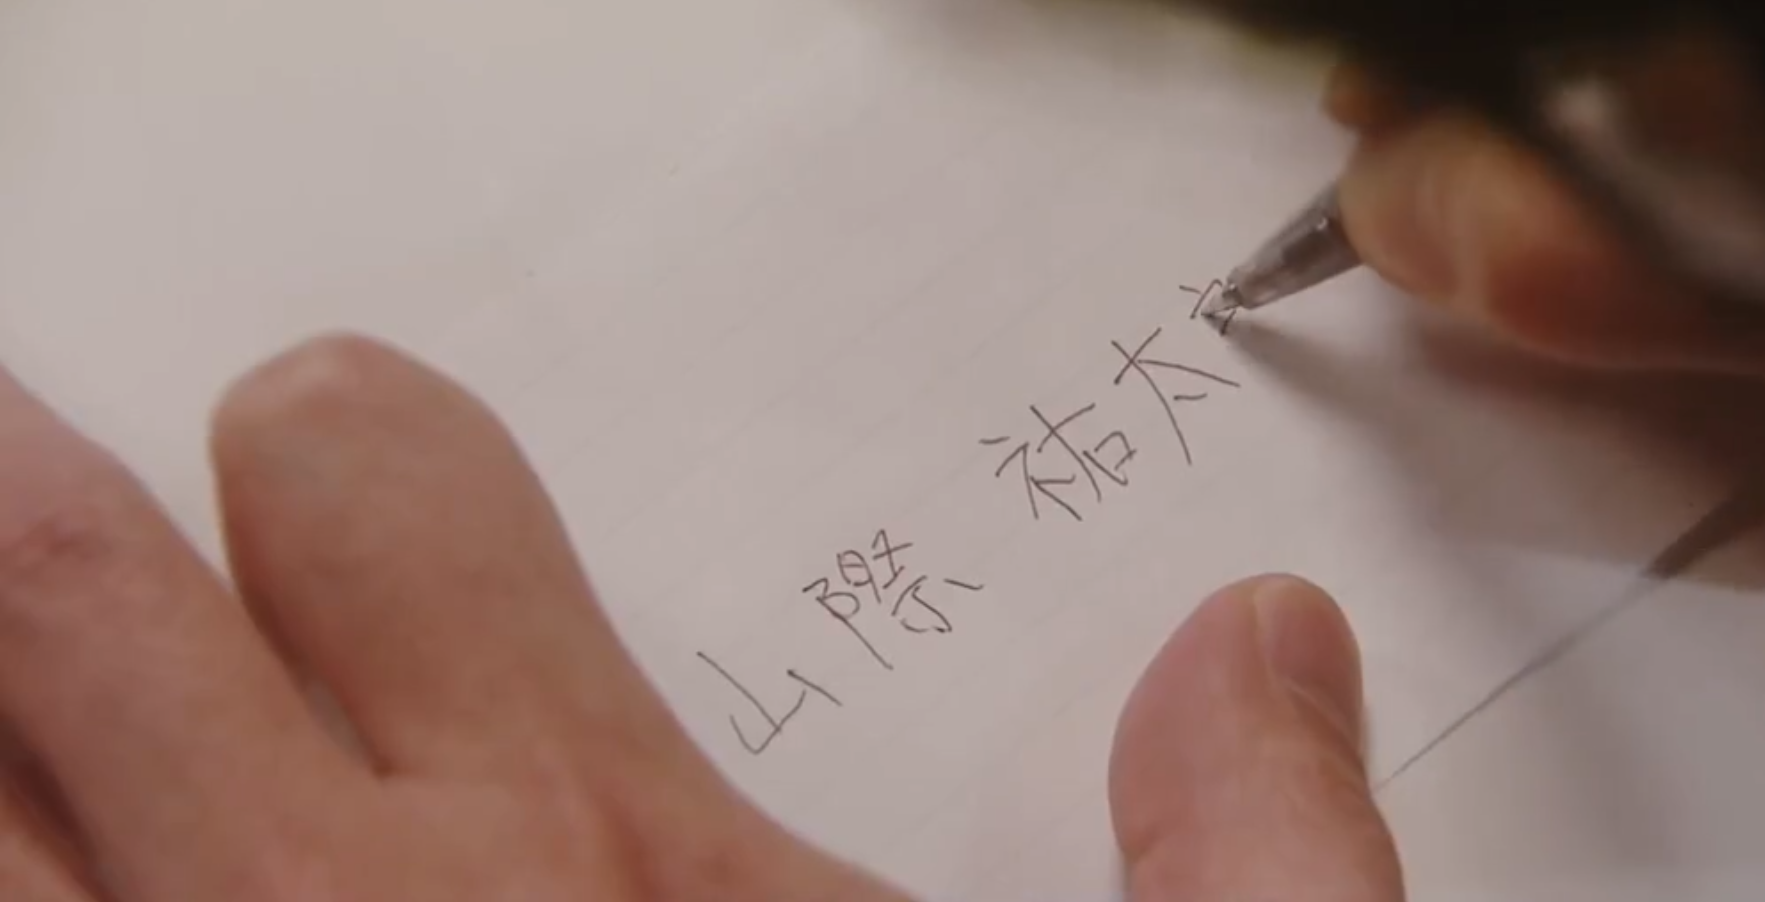 山際 祐太